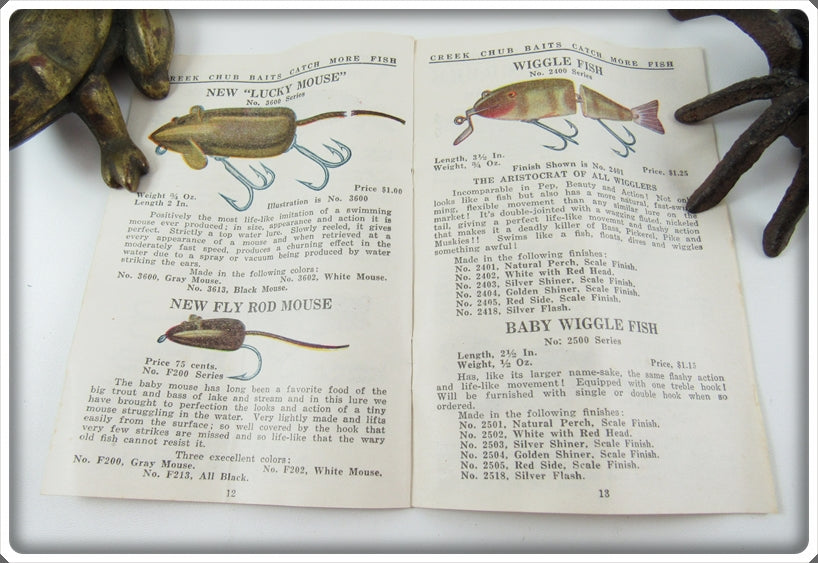 CREEK CHUB BAITS CATCH MORE FISH
NEW "LUCKY MOUSE"
No. 3600 Series
Weight ¾ Oz.
Length 2 In.
Illustration is No. 3600
Price $1.00
Positively the most life-like imitation of a swimming
mouse ever produced; in size, appearance and action it is
perfect. Strictly a top water lure. Slowly reeled, it gives
every appearance of a mouse and when retrieved at a
moderately fast speed, produces a churning effect in the
water due to a spray or vacuum being produced by water
striking the ears.
Made in the following colors:
No. 3600, Gray Mouse. No. 3602, White Mouse.
No. 3613, Black Mouse.
NEW FLY ROD MOUSE
Price 75 cents.
No. F200 Series
The baby mouse has long been a favorite food of the
big trout and bass of lake and stream and in this lure we
have brought to perfection the looks and action of a tiny
mouse struggling in the water. Very lightly made and lifts
easily from the surface; so well covered by the hook that
very few strikes are missed and so life-like that the wary
old fish cannot resist it.
Three excellent colors:
No. F200, Gray Mouse. No. F202, White Mouse.
No. F213, All Black.
12
CREEK CHUB BAITS CATCH MORE FISH
WIGGLE FISH
No. 2400 Series
Length, 3½ In.
Weight, ¾ Oz.
Finish Shown is No. 2401
Price, $1.25
THE ARISTOCRAT OF ALL WIGGLERS
Incomparable in Pep, Beauty and Action! Not only
looks like a fish but also has a more natural, fast-swim-
ming, flexible movement than any similar lure on the
market! It's double-jointed with a wagging fluted, nickeled
tail, giving a perfect life-like movement and flashy action
that makes it a deadly killer of Bass, Pickerel, Pike and
Muskies!! Swims like a fish, floats, dives and wiggles
something awful!
Made in the following finishes:
No. 2401, Natural Perch, Scale Finish.
No. 2402, White with Red Head.
No. 2403, Silver Shiner, Scale Finish.
No. 2404, Golden Shiner, Scale Finish.
No. 2405, Red Side, Scale Finish.
No. 2418, Silver Flash.
BABY WIGGLE FISH
No. 2500 Series
Length, 2½ In.
Weight, ½ Oz.
Price, $1.15
Has, like its larger name-sake, the same flashy action
and life-like movement! Equipped with one treble hook!
Will be furnished with single or double hook when so
ordered.
Made in the following finishes:
No. 2501, Natural Perch, Scale Finish.
No. 2502, White with Red Head.
No. 2503, Silver Shiner, Scale Finish.
No. 2504, Golden Shiner, Scale Finish.
No. 2505, Red Side, Scale Finish.
No. 2518, Silver Flash.
13